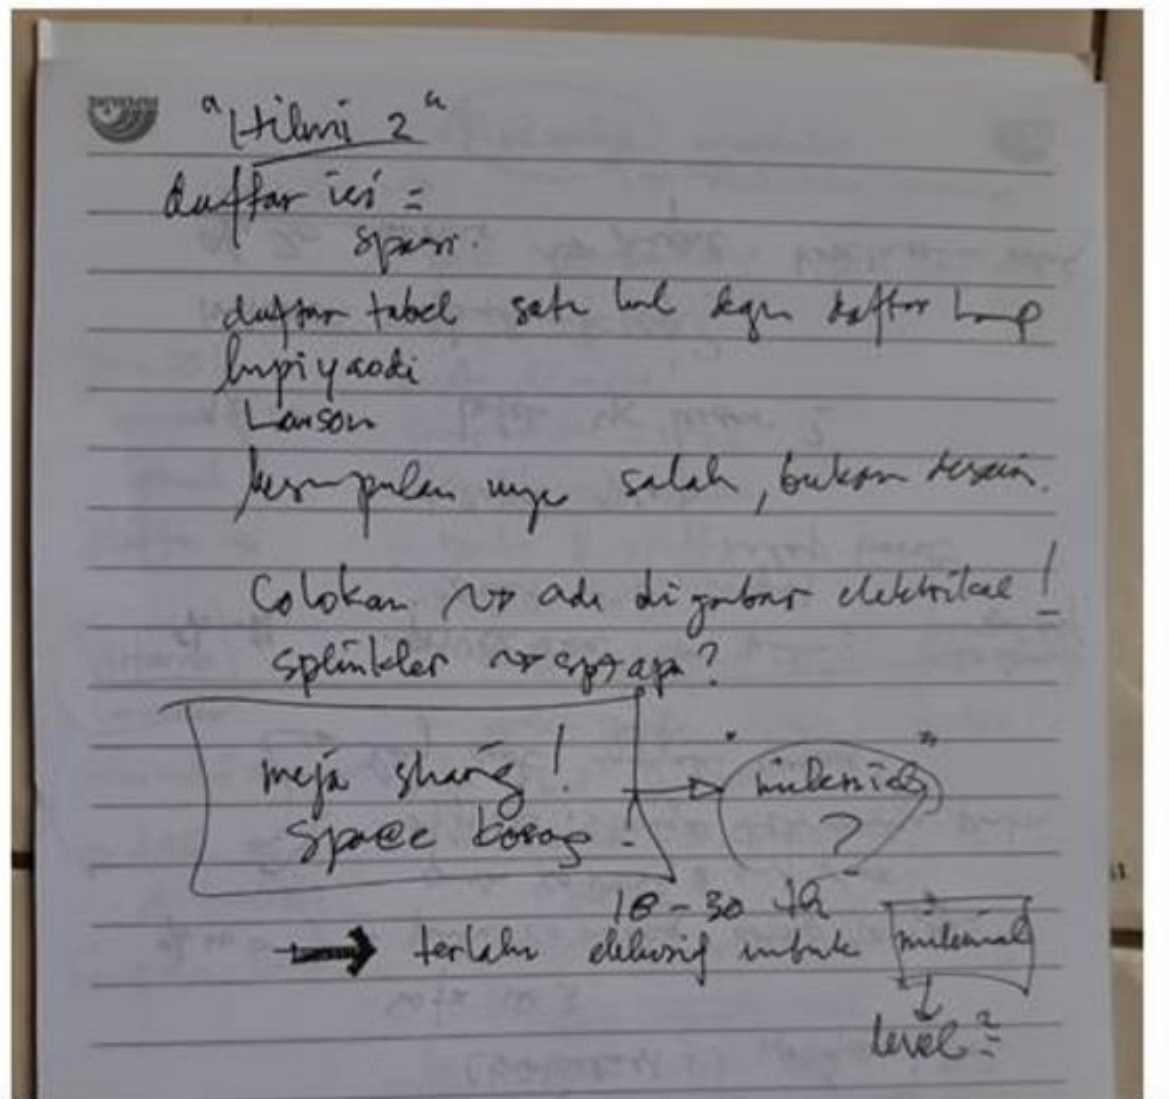 "Hilmi 2"
daftar isi =
spasi.
daftar tabel satu hal dgn daftar
lupiyaodi
Lawson
kesimpulan nya salah, bukan desain.
Colokan ~> ada di gambar elektrikal !
splinkler ~> apa?
meja sharing !
space kosong !
"milenial"
?
18-30 th
→ terlalu eklusif untuk milenial
↓
level?